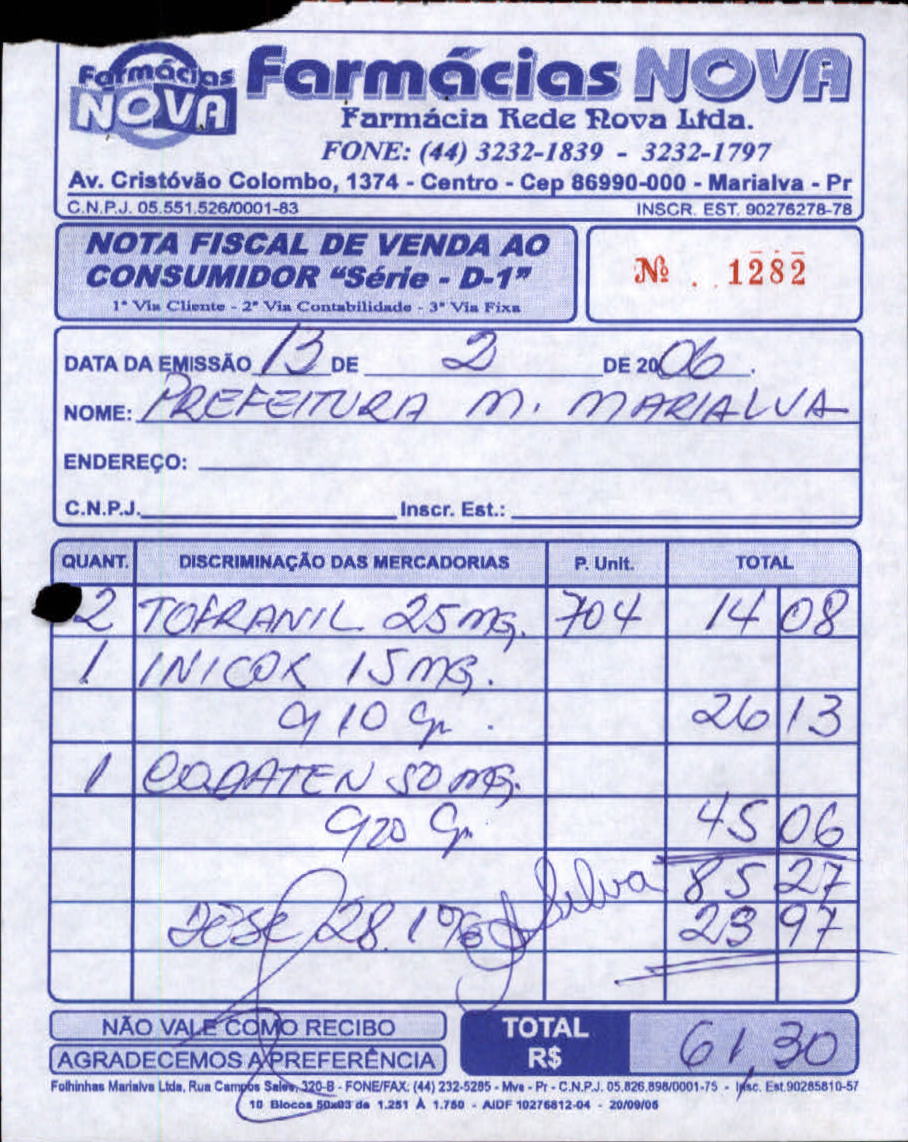 Farmácias NOVA
Farmácias NOVA
Farmácia Rede Nova Ltda.
FONE: (44) 3232-1839 - 3232-1797
Av. Cristóvão Colombo, 1374 - Centro - Cep 86990-000 - Marialva - Pr
C.N.P.J. 05.551.526/0001-83 INSCR. EST. 90276278-78
NOTA FISCAL DE VENDA AO
CONSUMIDOR "Série - D-1"
1ª Via Cliente - 2ª Via Contabilidade - 3ª Via Fixa
Nº 1282
DATA DA EMISSÃO 13 DE 2 DE 2006
NOME: PREFEITURA M. MARIALVA
ENDEREÇO:
C.N.P.J. Inscr. Est.:
QUANT. DISCRIMINAÇÃO DAS MERCADORIAS P. Unit. TOTAL
2 TOFRANIL 25mg. 704 14 08
1 INICOX 15mg.
c/10 26 13
1 CODATEN 50mg.
c/20 45 06
Silva 85 27
DESC 28,1% 23 97
NÃO VALE COMO RECIBO
AGRADECEMOS A PREFERÊNCIA
TOTAL
R$ 61,30
Folhinhas Marialva Ltda, Rua Campos Sales, 320-B - FONE/FAX: (44) 232-5285 - Mva - Pr - C.N.P.J. 05.826.898/0001-75 - Insc. Est.90285810-57
10 Blocos 50x03 de 1.251 À 1.750 - AIDF 10276812-04 - 20/09/05